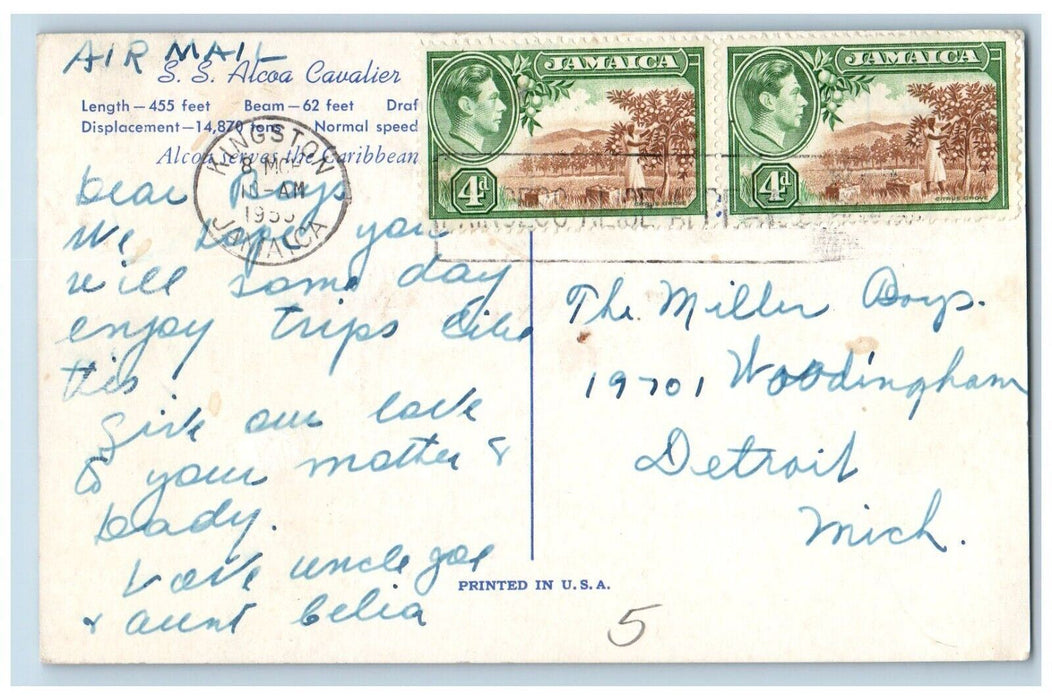 AIR MAIL
S. S. Alcoa Cavalier
Length — 455 feet Beam — 62 feet Draf
Displacement — 14,870 tons Normal speed
Alcoa serves the Caribbean
KINGSTON
8
AM
JAMAICA
JAMAICA
4d
JAMAICA
4d
Dear Boys
We hope you
will some day
enjoy trips like
this
Give our love
to your mother &
dady.
Love uncle Joe
& aunt Celia
The Miller Boys.
19701 Woodingham
Detroit
Mich.
PRINTED IN U.S.A.
5